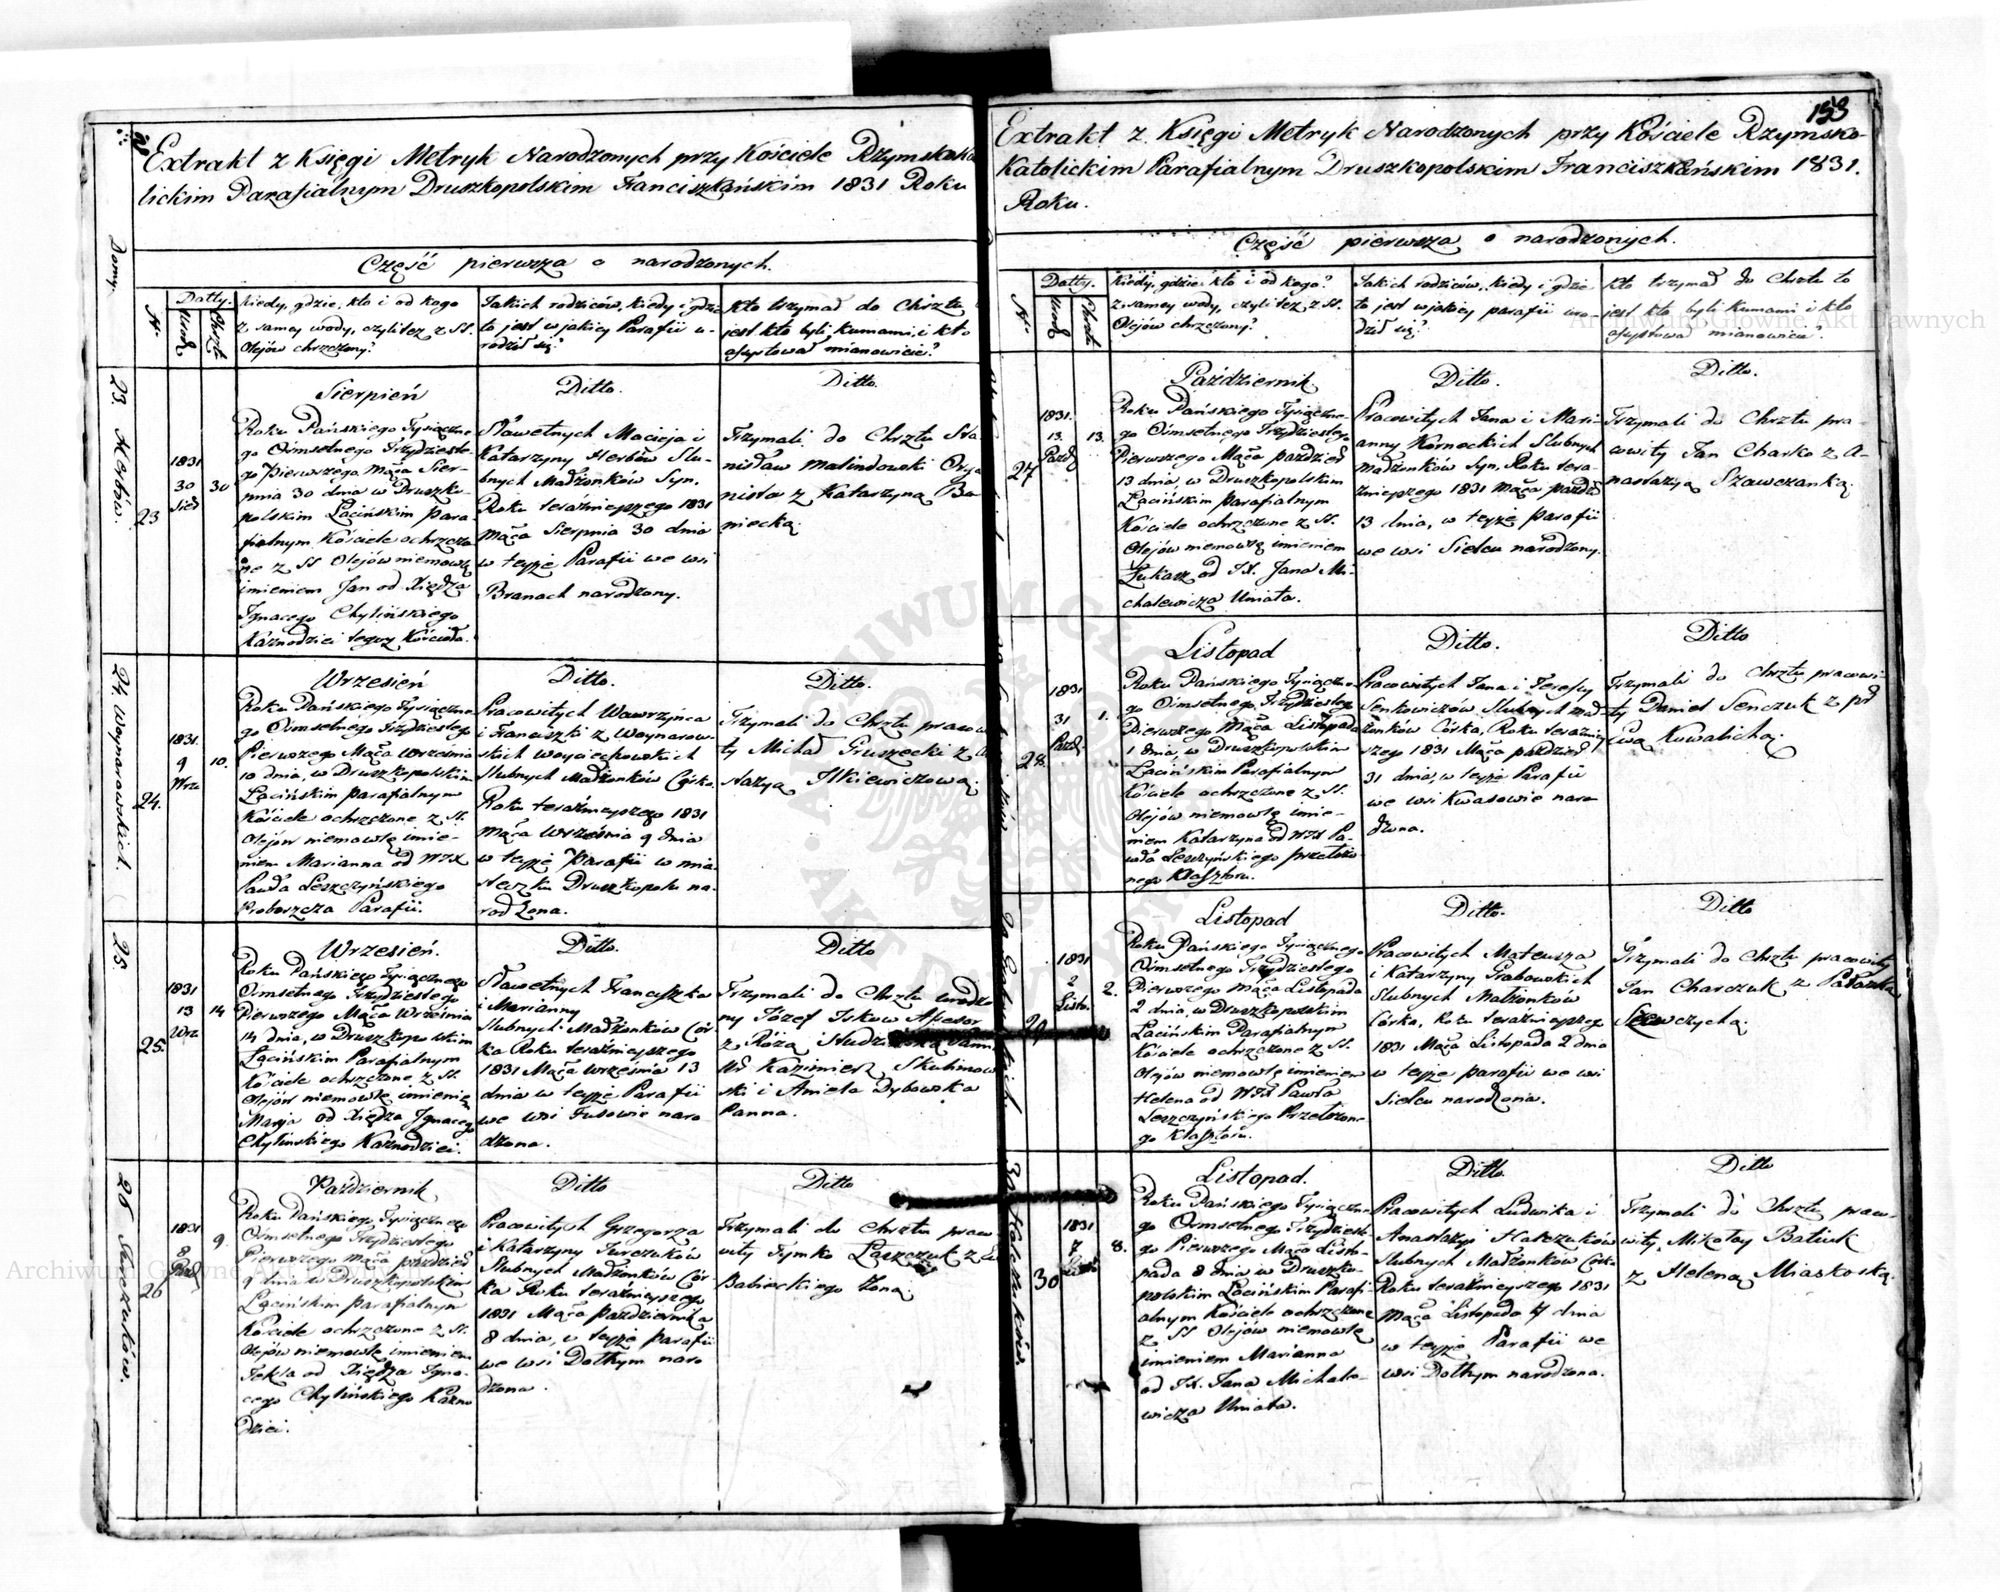 Extrakt z Księgi Metryk Narodzonych przy Kościele Rzymskoka
lickim Parafialnym Druszkopolskim Franciszkańskim 1831 Roku
Część pierwsza o narodzonych.
Domy.
Nr
Datty.
Urodz
Chrztu
Kiedy, gdzie, kto i od kogo
z samey wody, czyli też z SS.
Olejów chrzczony?
Jakich rodziców, kiedy i gdzie
to jest w jakiey Parafii u-
rodził się?
Kto trzymał do Chrztu
jest kto byli kumami, i kto
asystował mianowicie?
23
1831
30
Sier
30
Sierpień
Roku Pańskiego Tysiączne
go Ośmsetnego Trzydzieste
go Pierwszego Mąca Sier-
pnia 30 dnia w Druszko-
polskim Łacińskim para-
fialnym Kościele ochrzczo
ne z SS Olejów niemowlę
imieniem Jan od Xiędza
Ignacego Chylińskiego
Kaznodziei tegoż Kościoła.
Ditto.
Sławetnych Macieja i
Katarzyny Herbów Slu-
bnych Małżonków Syn,
Roku teraźnieyszego 1831
Mąca Sierpnia 30 dnia
w teyże Parafii we wsi
Branach narodzony.
Ditto.
Trzymali do Chrztu Sta
nisław Malindowski Orga
nista z Katarzyną Ba
niecką.
24 Woynarowskich.
24.
1831.
9
Wrze
10.
Wrzesień
Roku Pańskiego Tysiączne
go Ośmsetnego Trzydziestego
Pierwszego Mąca Września
10 dnia, w Druszkopolskim
Łacińskim parafialnym
Kościele ochrzczone z SS.
Olejów niemowlę imie-
niem Marianna od WJX
Pawła Leszczyńskiego
Proboszcza Parafii.
Ditto.
Pracowitych Wawrzyńca
i Franciszki z Woynarow-
skich Woyciechowskich
Slubnych Małżonków Córka.
Roku teraźnieyszego 1831
Mąca Września 9 dnia
w teyże Parafii w mia-
steczku Druszkopolu na-
rodzona.
Ditto.
Trzymali do Chrztu pracowi
ty Michał Gruszecki z A
stazyą Ilkiewiczową.
25.
25.
1831
13
Wrz
14
Wrzesień.
Roku Pańskiego Tysiącznego
Ośmsetnego Trzydziestego
Pierwszego Mąca Września
14 dnia, w Druszkopolskim
Łacińskim Parafialnym
Kościele ochrzczone z SS.
Olejów niemowlę imieniem
Marja od Xiędza Ignacego
Chylińskiego Kaznodziei.
Ditto.
Sławetnych Franciszka
i Marianny
Slubnych Małżonków Cór-
ka Roku teraźnieyszego
1831 Mąca Września 13
dnia w teyże Parafii
we wsi Fusowie naro
dzona.
Ditto
Trzymali do Chrztu urodzo
ny Józef Iskow Asesor
z Różą
WP. Kazimierz Skulimow
ski i Aniela Dybowska
Panna.
26
1831
8
Paźd
9
Październik
Roku Pańskiego Tysiącznego
Ośmsetnego Trzydziestego
Pierwszego Mąca paździer
9 dnia w Druszkopolskim
Łacińskim parafialnym
Kościele ochrzczone z SS.
Olejów niemowlę imieniem
Tekla od Xiędza Igna-
cego Chylińskiego Kazno
dziei.
Ditto
Pracowitych Grzegorza
i Katarzyny Turczuków
Slubnych Małżonków Cór
ka Roku teraźnieyszego
1831 Mąca Października
8 dnia, w teyże parafii
we wsi Dołhym naro
dzona.
Ditto
Trzymali do Chrztu praco
wity Tymko Laszczuk z Ew
Babireckiego Żoną.
153
Extrakt z Księgi Metryk Narodzonych przy Kościele Rzymsko-
Katolickim Parafialnym Druszkopolskim Franciszkańskim 1831.
Roku.
Część pierwsza o narodzonych.
Nr
Datty.
Urodz
Chrztu
Kiedy, gdzie, kto i od kogo?
z samey wody, czyli też z SS.
Olejów chrzczony?
Jakich rodziców, kiedy i gdzie
to jest w jakiey parafii uro-
dził się?
Kto trzymał do Chrztu to
jest kto byli kumami i kto
asystował mianowicie?
27
1831.
13.
Paźdz
13.
Październik
Roku Pańskiego Tysiączne-
go Ośmsetnego Trzydziestego
Pierwszego Mąca paździer
13 dnia, w Druszkopolskim
Łacińskim parafialnym
Kościele ochrzczone z SS.
Olejów niemowlę imieniem
Łukasz od JX. Jana Mi-
chalewicza Uniata.
Ditto.
Pracowitych Jana i Mari-
anny Kornackich Slubnych
Małżonków Syn, Roku tera-
źnieyszego 1831 Mąca paźdz
13 dnia, w teyże parafii
we wsi Sielcu narodzony.
Ditto.
Trzymali do Chrztu pra-
cowity Jan Charko z A-
nastazyą Szawczanką.
28.
1831
31
Paźdz
1.
Listopad
Roku Pańskiego Tysiączne-
go Ośmsetnego Trzydziestego
Pierwszego Mąca Listopada
1 dnia, w Druszkopolskim
Łacińskim Parafialnym
Kościele ochrzczone z SS.
Olejów niemowlę imie-
niem Katarzyna od WJX Pa-
wła Leszczyńskiego przełożo-
nego Klasztoru.
Ditto.
Pracowitych Jana i Teressy
Senkowiczów Slubnych Mał
żonków Córka, Roku teraźniey
szego 1831 Mąca paździer
31 dnia, w teyże Parafii
we wsi Kwasowie naro
dzona.
Ditto
Trzymali do Chrztu pracowi-
ty Daniel Senczuk z
Ewą Kowalichą.
29
1831
2
Listo.
2.
Listopad
Roku Pańskiego Tysiącznego
Ośmsetnego Trzydziestego
Pierwszego Mąca Listopada
2 dnia, w Druszkopolskim
Łacińskim Parafialnym
Kościele ochrzczone z SS.
Olejów niemowlę imieniem
Helena od WJX Pawła
Leszczyńskiego Przełożone-
go Klasztoru.
Ditto.
Pracowitych Mateusza
i Katarzyny Grabowskich
Slubnych Małżonków
Córka, Roku teraźnieyszego
1831 Mąca Listopada 2 dnia
w teyże parafii we wsi
Sielcu narodzona.
Ditto
Trzymali do Chrztu pracowity
Jan Charczuk z Pałażką
Szewczychą.
30 Halczuków.
30
1831
7
8.
Listopad.
Roku Pańskiego Tysiączne-
go Ośmsetnego Trzydzieste-
go Pierwszego Mąca Listo-
pada 8 dnia w Druszko-
polskim Łacińskim Parafi-
alnym Kościele ochrzczone
z SS Olejów niemowlę
imieniem Marianna
od JX. Jana Michale-
wicza Uniata.
Ditto
Pracowitych Ludwika i
Anastazyi Halczuków
Slubnych Małżonków Córka
Roku teraźnieyszego 1831
Mąca Listopada 7 dnia
w teyże Parafii we
wsi Dołhym narodzona.
Ditto
Trzymali do Chrztu praco-
wity, Mikołay Batiuk
z Heleną Miaskoską.
Archiwum Główne Akt Dawnych
Archiwum Główne Akt Dawnych